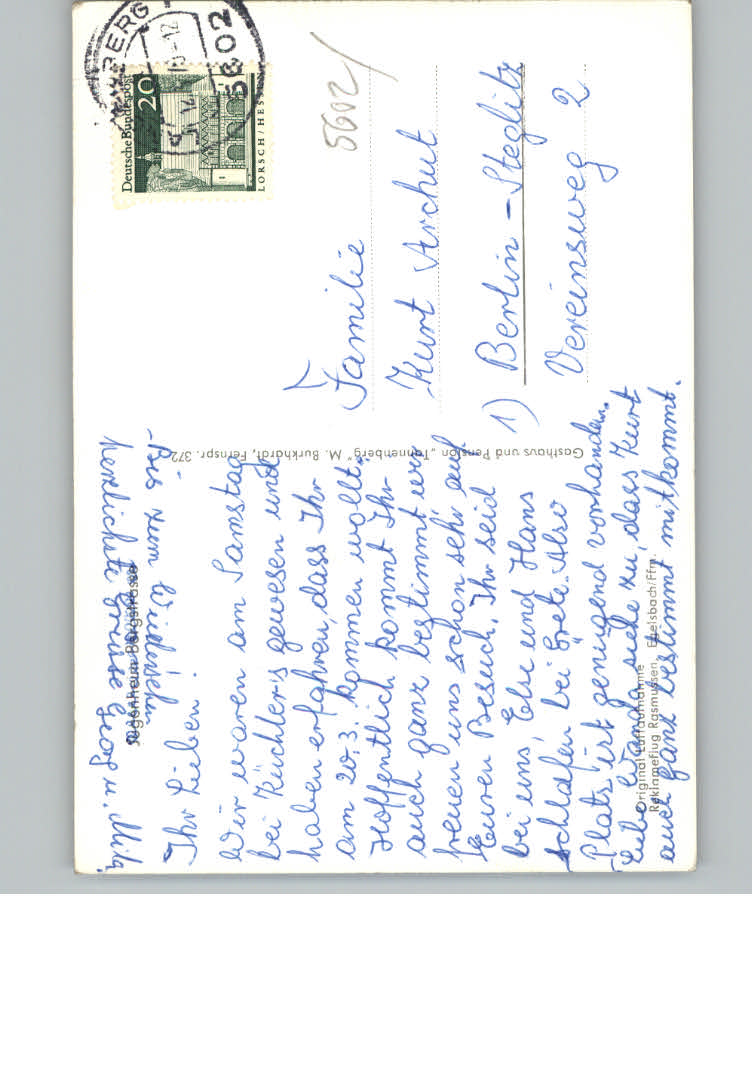 Ihr Lieben!
Wir waren am Samstag
bei Küchler's gewesen und
haben erfahren, dass Ihr
am 20.3. kommen wollt.
Hoffentlich kommt Ihr
auch ganz bestimmt wir
freuen uns schon sehr auf
Euren Besuch. Ihr seid
bei uns, Else und Hans
schlafen bei Grete. Also
Platz ist genügend vorhanden.
Liebe Wanda siehe zu, dass Kurt
auch ganz bestimmt mitkommt.
Bis zum Wiedersehn
herzlichste Grüsse Georg u.
Jugenheim Bergstrasse
Gasthaus und Pension „Tannenberg" M. Burkhardt, Fernspr. 372
Original Luftaufnahme
Reklameflug Rasmussen, Egelsbach/Ffm.
Deutsche Bundespost
20
LORSCH/HESSEN
BERG
5602
5602/
Familie
Kurt Archut
1) Berlin - Steglitz
Vereinsweg 2